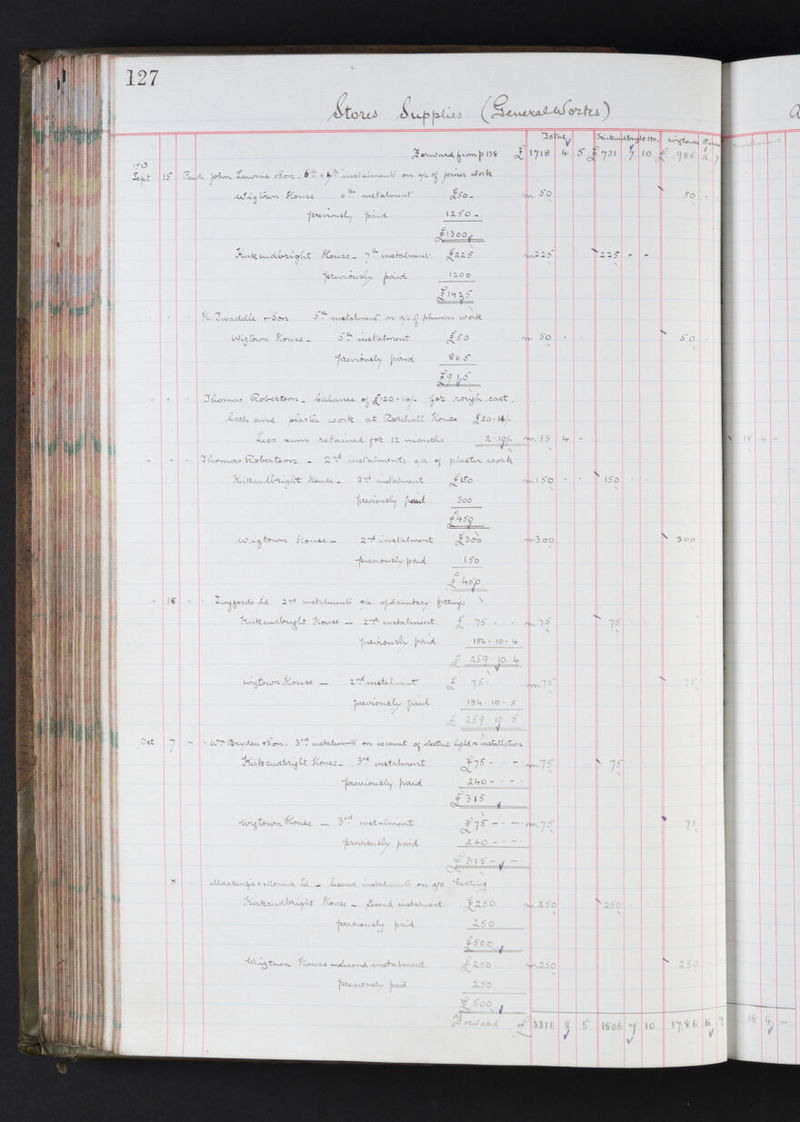 127
Stores Supplies (General Works)
Total Kirkcudbright Ho. Wigtown
Forward from p 138 £ 1718 4 5 £ 731 7 10 £ 986 16 7
1913
Sept 15 Paid John Lownie & Son - 6th & 7th instalments on a/c of joiner work
Wigtown House 6th instalment £50 - 50 50
previously paid 1250 -
£1300
Kirkcudbright House - 7th instalment £225 225 225 - -
previously paid 1200
£1425
H. Twaddle & Son 5th instalment on a/c of plumber work
Wigtown House - 5th instalment £50 50 50
previously paid 865
£915
Thomas Robertson - balance of £120-14/- for rough cast
lath and plaster work at House £20-14/-
Less sum retained for 12 months 2-10/- 18 4 - 18 4 -
Thomas Robertson - 2nd instalments a/c of plaster work
Kirkcudbright House - 2nd instalment £150 150 150
previously paid 300
£450
Wigtown House - 2nd instalment £300 300 300
previously paid 150
£450
16 Twyfords Ld 2nd instalments on a/c sanitary fittings
Kirkcudbright House - 2nd instalment £ 75 75 75
previously paid 184-10-4
£ 259-10-4
Wigtown House - 2nd instalment £ 75 75 75
previously paid 184-10-5
£ 259-10-5
Oct 7 Wm Bryden & Son - 3rd instalments on account of electric light installation
Kirkcudbright House - 3rd instalment £75 - - 75 75
previously paid 240 - -
£315
Wigtown House - 3rd instalment £75 - - 75 75
previously paid 240 - -
£315 - -
8 Mackenzie & Moncur Ld - Second instalments on a/c heating
Kirkcudbright House - Second instalment £250 250 250
previously paid 250
£500
Wigtown House - Second instalment £250 250 250
previously paid 250
£500
Forward £ 3311 8 5 1506 7 10 1786 16 7 18 4 -